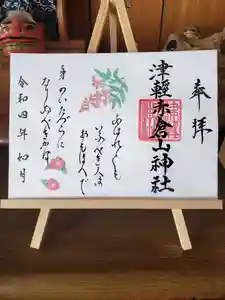 奉拝
津輕赤倉山神社
あはれとも
いふべき人は
おもほえで
身のいたづらに
なりぬべきかな
令和四年 如月